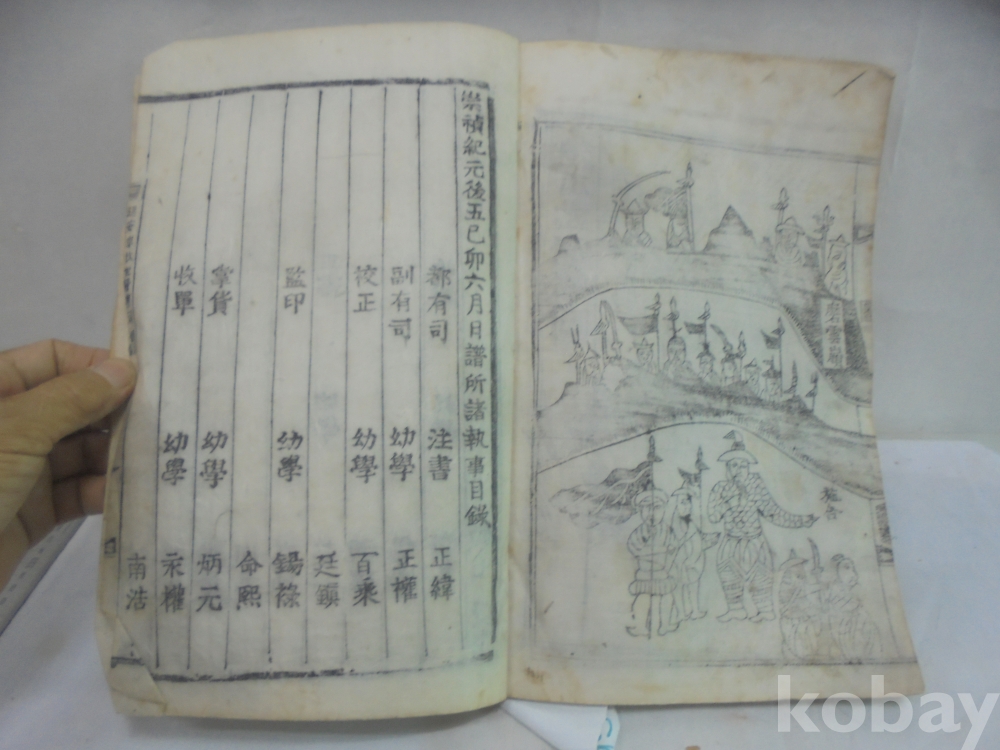 崇禎紀元後五己卯六月日譜所諸執事目錄
都有司 注書 正緯
副有司 幼學 正權
校正 幼學 百乘
廷鎭
監印 幼學 錫祿
命熙
掌貨 幼學 炳元
收單 幼學 永權
南浩
kobay